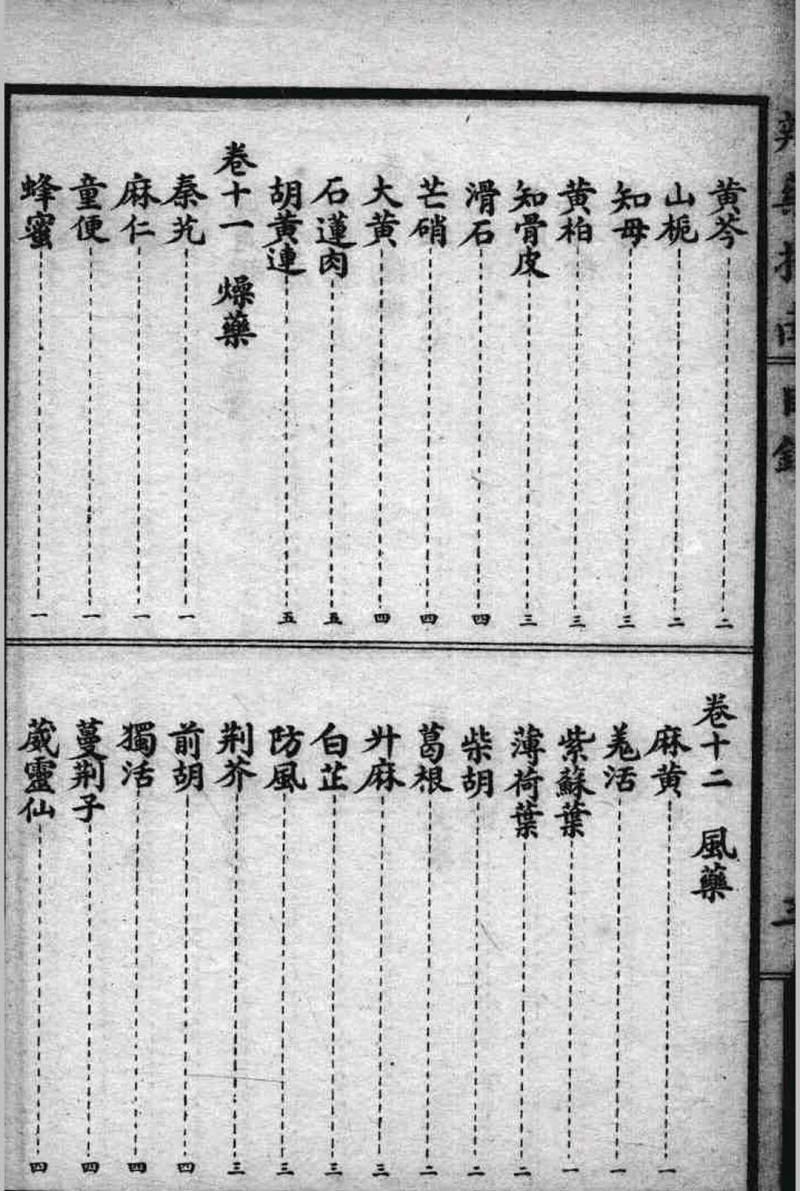 黄芩 二
山梔 二
知母 三
黄柏 三
知骨皮 三
滑石 四
芒硝 四
大黄 四
石蓮肉 五
胡黄連 五
卷十一 燥藥
秦艽 一
麻仁 一
童便 一
蜂蜜 一
卷十二 風藥
麻黄 一
羗活 一
紫蘇葉 一
薄荷葉 二
柴胡 二
葛根 二
升麻 三
白芷 三
防風 三
荆芥 三
前胡 四
獨活 四
蔓荆子 四
葳靈仙 四